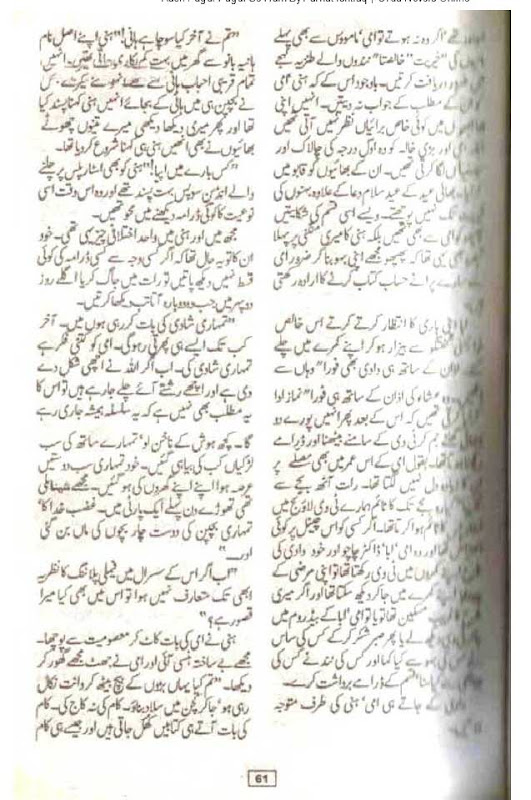 دیتے تھے۔ اگر وہ نہ ہوتے تو امی' ماموؤں سے بھی پہلے
کی "خیریت" خالصتاً نندوں والے طنزیہ لہجے
دریافت کرتیں۔ باوجود اس کے کہ ہنی' امی
کے مطلب کے جواب نہ دیتیں۔ انہیں اپنی
میں کوئی خاص برائیاں نظر نہیں آتی تھیں
امی اور بڑی خالہ کو وہ اول درجہ کی چالاک اور
لگا کرتی تھیں۔ ان کے بھائیوں کو قابو میں
بھائی عید کے عید سلام دعا کے علاوہ بہنوں کی
تک نہیں پوچھتے۔ ویسے اسی قسم کی شکایتیں
امی سے بھی تھیں بلکہ ہنی کا میری منگنی پر پہلا
یہی تھا کہ پھوپھو مجھے اپنی بہو بنا کر ضرور امی
سارے پرانے حساب کتاب کرنے کا ارادہ رکھتی
ابا اپنی باری کا انتظار کرتے کرتے اس خالص
گفتگو سے بیزار ہو کر اپنے کمرے میں چلے
اذان کے ساتھ ہی دادی بھی فوراً" وہاں سے
وہ عشاء کی اذان کے ساتھ ہی فوراً" نماز ادا
کرتی تھیں کہ اس کے بعد پھر انہیں پورے دو
جم کر ٹی وی کے سامنے بیٹھنا اور ڈرامے
تھا۔ بقول امی کے اس عمر میں بھی مصلے پر
دل نہیں لگتا تھا۔ رات آٹھ بجے سے
بجے تک کا ٹائم ہمارے ٹی وی لاؤنج میں
کا ٹائم ہوا کرتا تھا۔ اگر کسی کو اس چینل پر کوئی
تھا اور وہ امی' ابا' ڈاکٹر چاچو اور خود دادی کی
میں ٹی وی رکھتا تھا تو اپنی مرضی کے
کمرے میں جا کر دیکھ سکتا تھا اور اگر میری
مسکین تھا تو یا تو امی' ابا کے بیڈ روم میں
دیکھ لے یا پھر صبر شکر کر کے کس کی ساس
بہو سے کیا کہا اور کس کی نند نے کس کی
سنا "قسم کے ڈرامے برداشت کرے۔
کے جاتے ہی امی' ہنی کی طرف متوجہ
"تم نے آخر کیا سوچا ہے ہانی!" ہنی اپنے اصل نام
ہانیہ بانو سے گھر میں بہت کم پکاری جاتی تھیں۔ انہیں
تمام قریبی احباب ہانی کہتے تھے
نے بچپن ہی میں ہانی کے بجائے انہیں ہنی کہنا پسند کیا
تھا اور پھر میری دیکھا دیکھی میرے تینوں چھوٹے
بھائیوں نے بھی انہیں ہنی کہنا شروع کر دیا تھا۔
"کس بارے میں اپیا!" ہنی کو بھی اسٹار پلس پر چلنے
والے انڈین سوپس بہت پسند تھے اور وہ اس وقت اسی
نوعیت کا کوئی ڈرامہ دیکھنے میں محو تھیں۔
مجھ میں اور ہنی میں واحد اختلافی چیز یہی تھی۔ خود
ان کا تو یہ حال تھا کہ اگر کسی وجہ سے کسی ڈرامہ کی کوئی
قسط نہیں دیکھ پاتیں تو رات میں جاگ کر یا اگلے روز
دوپہر میں جب وہ دوبارہ آتا تب دیکھا کرتیں۔
"تمہاری شادی کی بات کر رہی ہوں میں۔ آخر
کب تک ایسے ہی پھرتی رہو گی۔ امی کو کتنی فکر ہے
تمہاری شادی کی۔ اب اگر اللہ نے اچھی شکل دے
دی ہے اور اچھے رشتے آئے چلے جا رہے ہیں تو اس کا
یہ مطلب بھی نہیں ہے کہ یہ سلسلہ ہمیشہ جاری رہے
گا۔ کچھ ہوش کے ناخن لو' تمہارے ساتھ کی سب
لڑکیاں کب کی بیاہی گئیں۔ خود تمہاری سب دوستیں
عرصہ ہوا اپنے اپنے گھروں کی ہو گئیں۔ مجھے شہنیلا ملی
تھی تھوڑے دن پہلے ایک پارٹی میں۔ غضب خدا کا'
تمہاری بچپن کی دوست چار بچوں کی ماں بن گئی
اور۔۔۔"
"اب اگر اس کے سسرال میں فیملی پلاننگ کا نظریہ
ابھی تک متعارف نہیں ہوا تو اس میں بھی کیا میرا
قصور ہے؟"
ہنی نے امی کی بات کاٹ کر معصومیت سے پوچھا۔
مجھے بے ساختہ ہنسی آئی اور امی نے جھٹ مجھے گھور کر
دیکھا۔ "تم کیا یہاں بڑوں کے بیچ بیٹھ کر دانت نکال
رہی ہو' جا کر کچن میں سلاد بناؤ۔ کام کی نہ کاج کی۔ کام
کی بات آتے ہی کتابیں کھل جاتی ہیں اور جیسے ہی کام
61